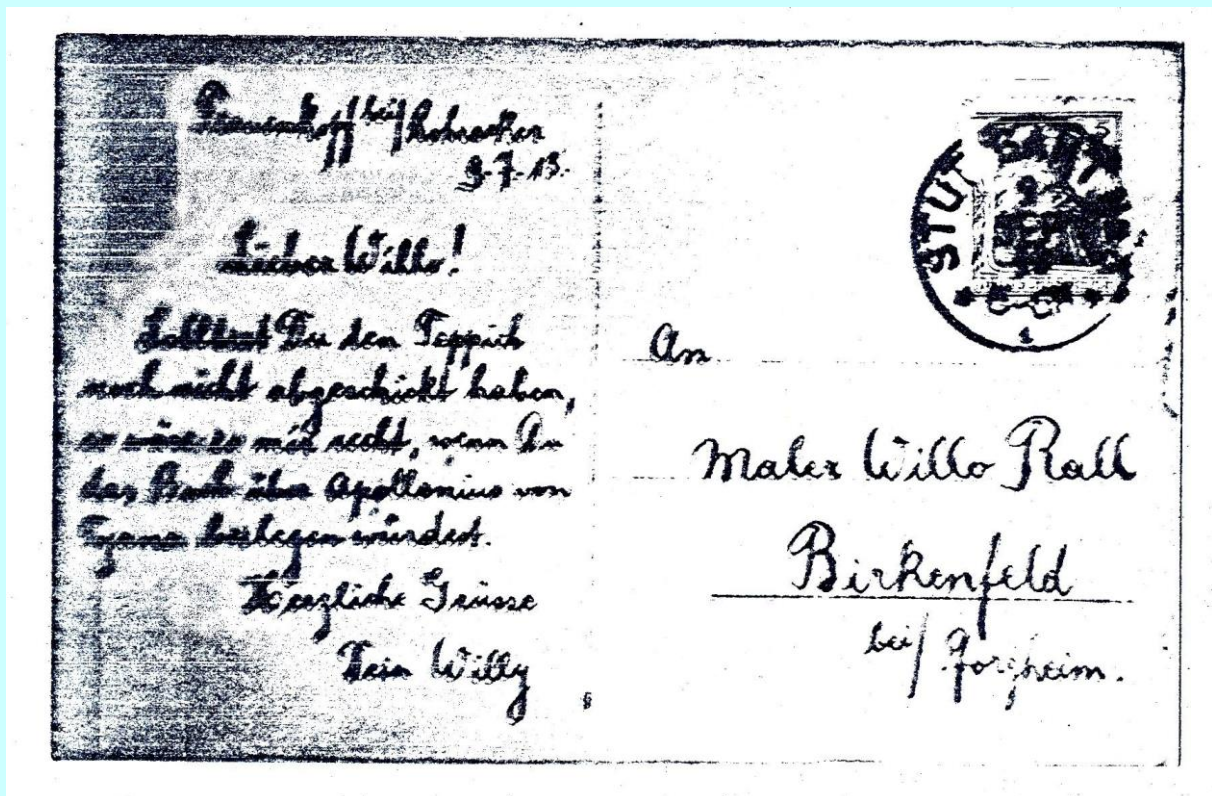 bei/ Rohracker
9.7.13.
Lieber Willo!
Solltest Du den Teppich
noch nicht abgeschickt haben,
so wäre es mir recht, wenn Du
das Buch über Apollonius von
Tyana beilegen würdest.
Herzliche Grüsse
Dein Willy
STUTTGART
9
SEP
An
Maler Willo Rall
Birkenfeld
bei/ Pforzheim.